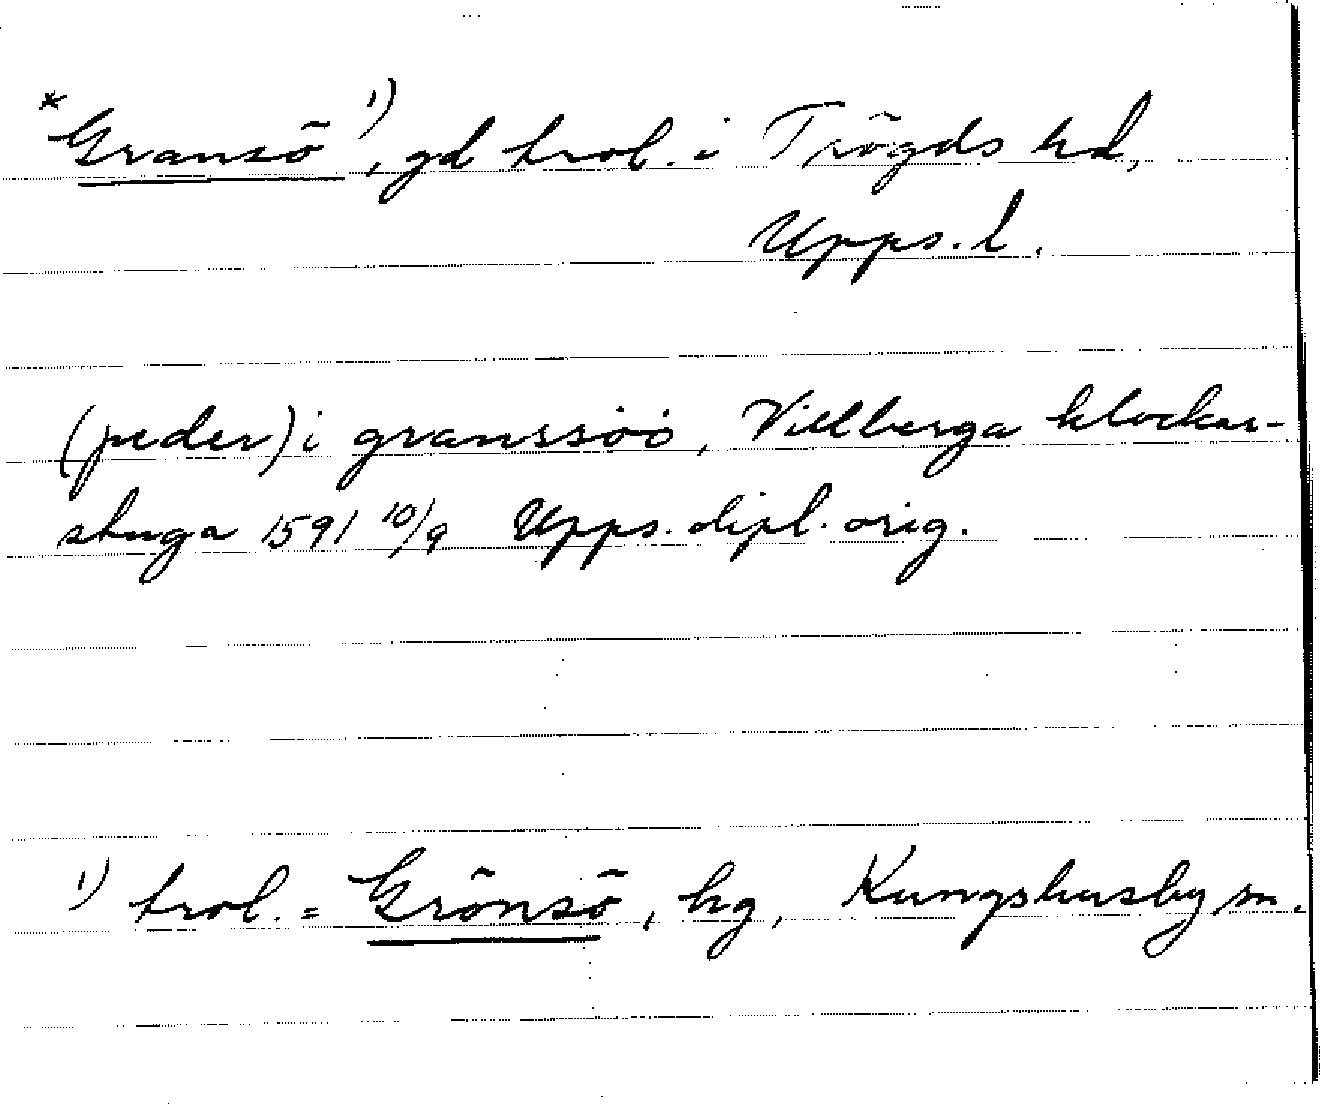 *Gransö ¹⁾, gd trol. i Trögds hd,
Upps. l.
(peder) i granssöö, Villberga klockar-
stuga 1591 10/9 Upps. dipl. orig.
¹⁾ trol. = Grönsö, hg, Kungshusby sn.